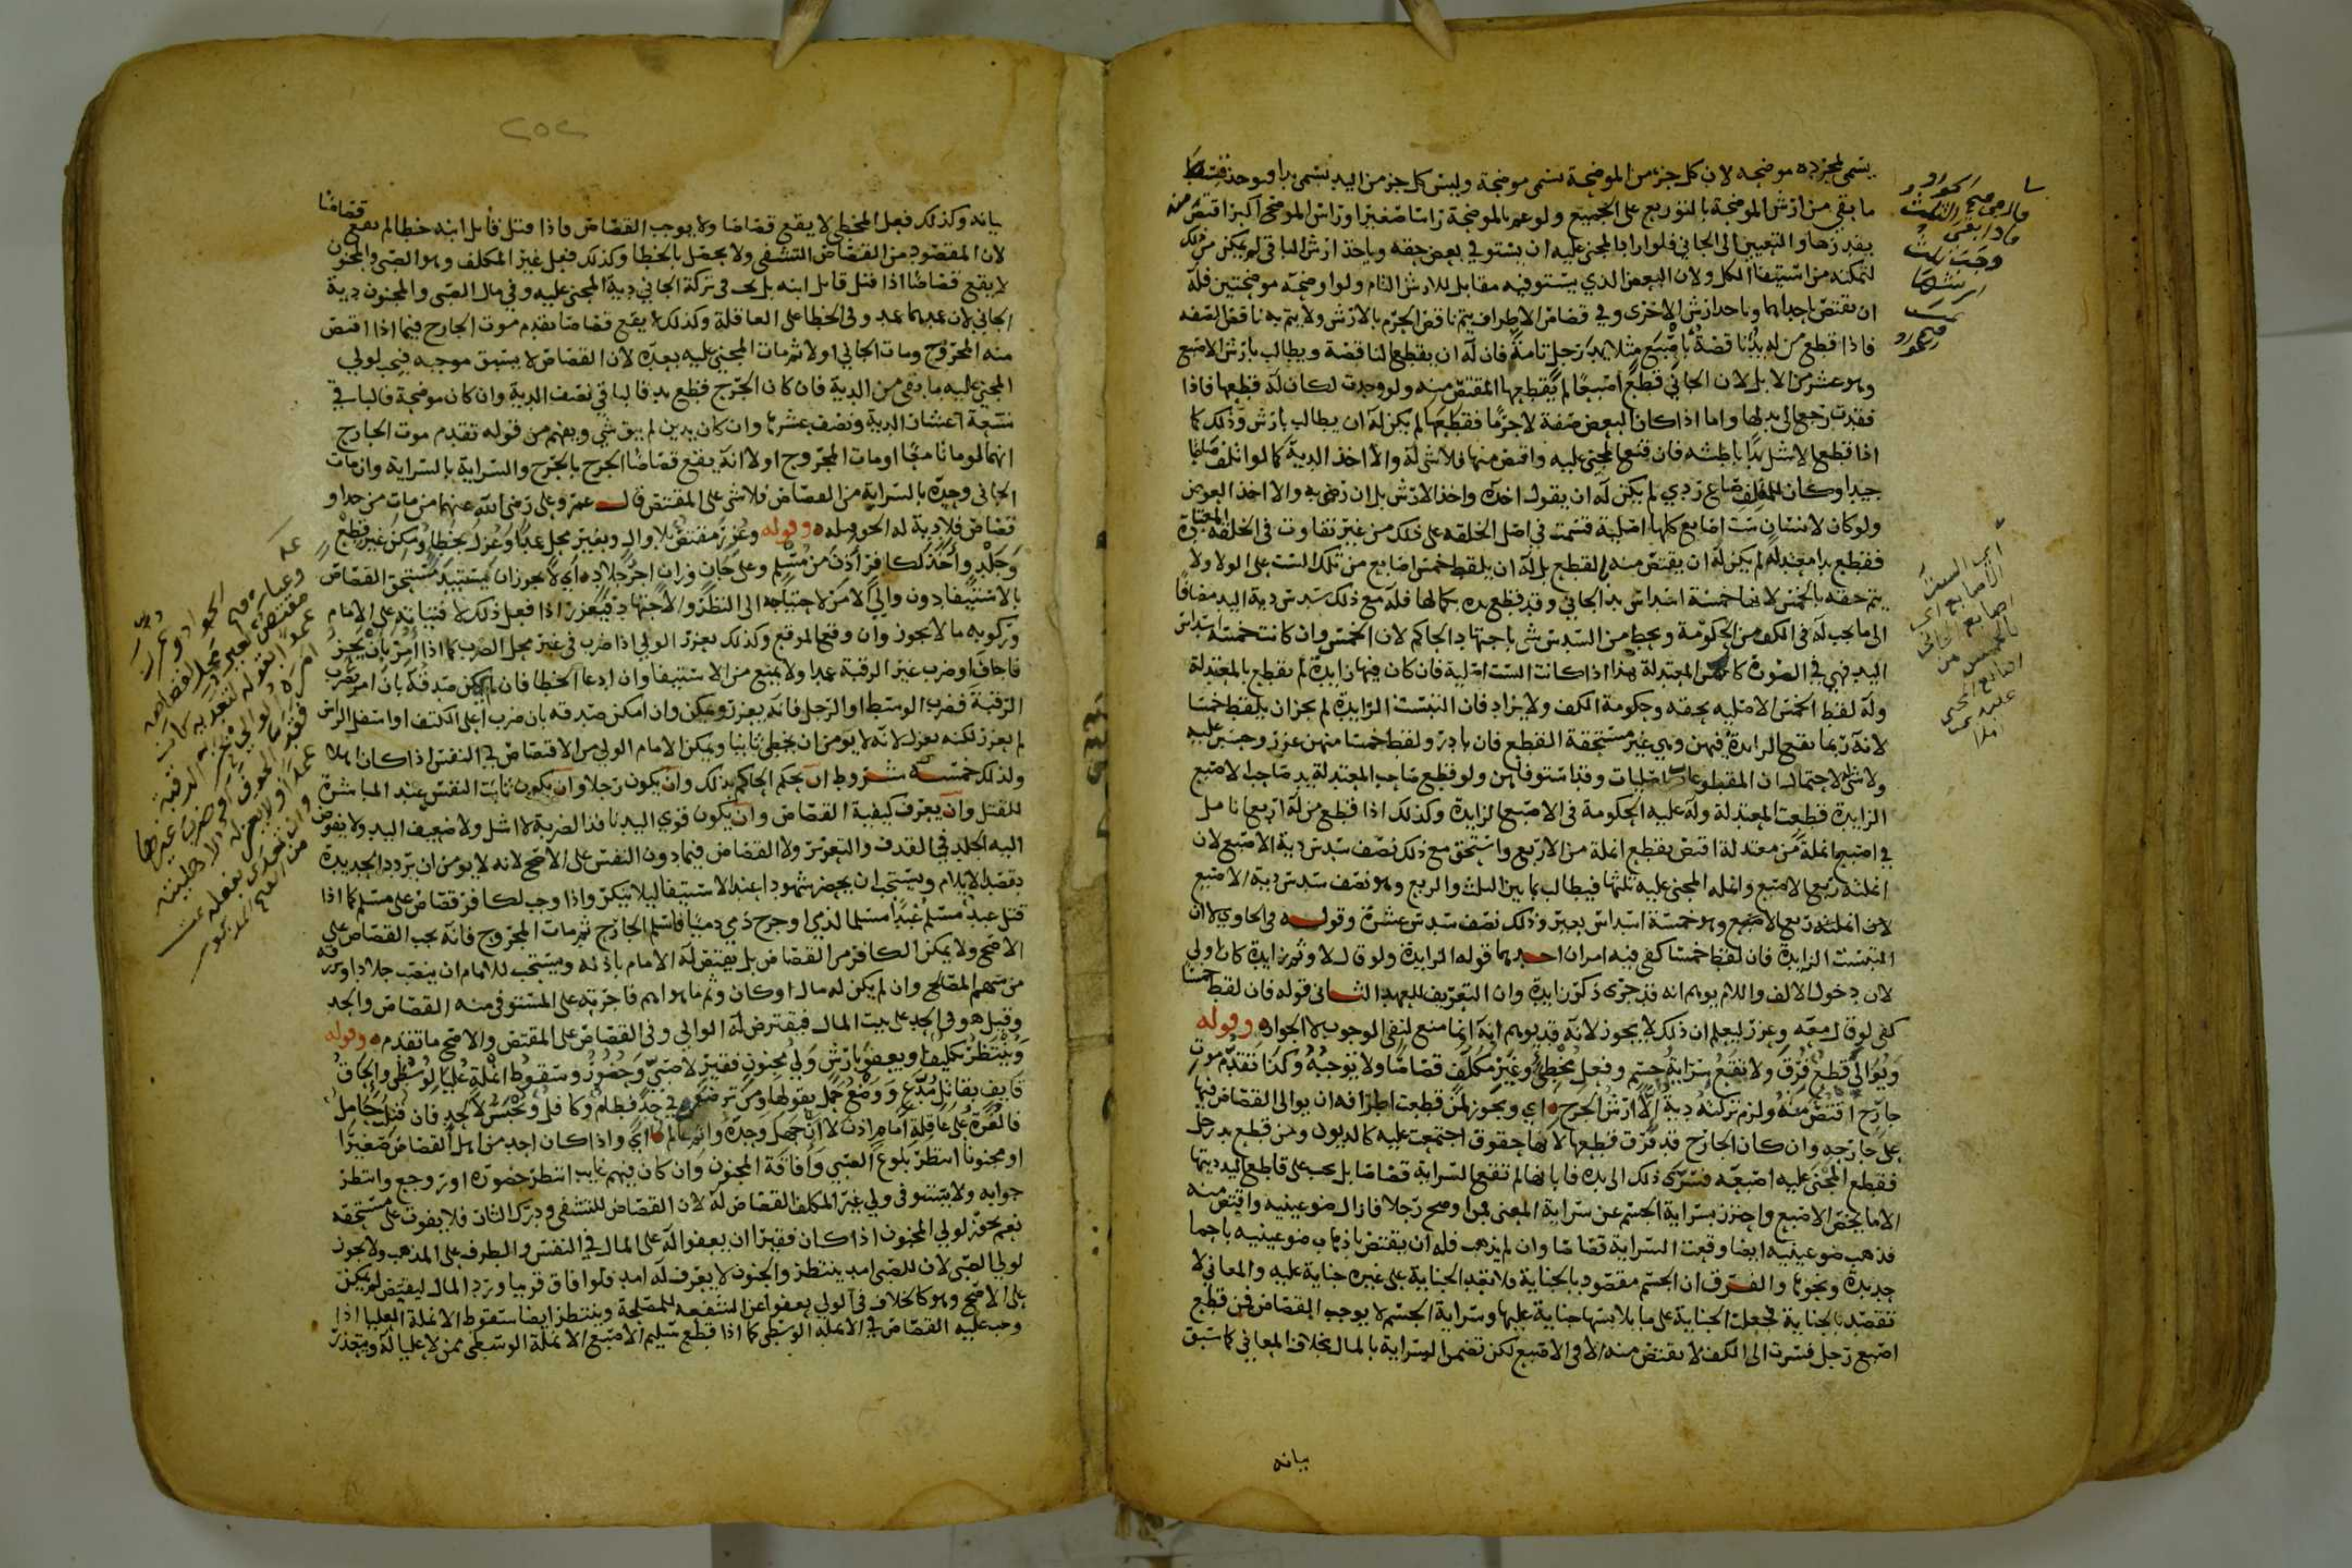 يسمى لمجرده موضحه لان كل جزء من الموضحة تسمى موضحة وليس كل جزء من اليد يسمى يدا ويوخذ قسط
ما بقي من ارش الموضحة بالتوزيع على الجميع ولو عم بالموضحة راسا صغيرا وراس الموضح اكبر اقتص منه
بقدرها والتعيين الى الجاني فلو اراد المجني عليه ان يستوفي بعض حقه وياخذ ارش الباقي لم يمكن من ذلك
لتمكنه من استيفا الكل ولان البعض الذي يستوفيه مقابل للارش التام ولو اوضحه موضحتين فله
ان يقتص احداهما وياخد ارش الاخرى وفي قصاص الاطراف يتم ناقص الجرم بالارش ولا يتم به ناقص الصفه
فاذا قطع من له يد ناقصة باصبع مثلا يد رجل تامة فان له ان يقطع الناقصة ويطالب بارش الاصبع
وهو عشر من الابل لان الجاني قطع اصبعا لم يقطعها المقتص منه ولو وجدت لكان له قطعها فاذا
فقدت رجع الى بدلها واما اذا كان البعض صفة لا جرما فقطعها لم يكن له ان يطالب بارش وذلك كما
اذا قطع الاشل يدا باطشه فان قنع المجني عليه واقتص منها فلا شي له والا اخذ الدية كما لو اتلف
جيدا وكان للمتلف صاع ردي لم يكن له ان يقول اخذه واخذ الارش بل ان رضي به والا اخذ العوض
ولو كان لانسان ست اصابع كلها اصلية قسمت في اصل الخلقه على ذلك من غير تفاوت في الخلقة المعتادة
فقطع يدا معتدلة لم يكن له ان يقتص منه بالقطع بل له ان يلقط خمس اصابع من تلك الست على الولا ولا
يتم حقه بالخمس لانها خمسة اسداس يد الجاني وقد قطع يده بكمالها فله مع ذلك سدس دية اليد مضافا
الى ما يجب له في الكف من الحكومة ويحط من السدس شي باجتهاد الحاكم لان الخمس وان كانت خمسة اسداس
اليد فهي في الصورة كالخمس المعتدلة هذا اذا كانت الست اصلية فان كان فيها زايدة لم يقطع بالمعتدلة
وله لقط الخمس الاصليه بحقه وحكومة الكف ولا يزاد فان التبست الزايدة لم يجز ان يلقط خمسا
لانه ربما يقع الزايدة فيهن وهي غير مستحقة القطع فان بادر ولقط خمسا منهن عزر
ولا شي له لاحتمال ان المقطوعات اصليات وقد استوفاهن ولو قطع صاحب المعتدلة يد صاحب الاصبع
الزايدة قطعت المعتدلة وله عليه الحكومة في الاصبع الزايدة وكذلك اذا قطع من له اربع انامل
في اصبع انملة من معتدلة اقتص بقطع انملة من الاربع واستحق مع ذلك نصف سدس دية الاصبع لان
انملته ربع الاصبع وانملة المجني عليه ثلثها فيطالب بما بين الثلث والربع وهو نصف سدس دية الاصبع
لان انملته ربع الاصبع وهو خمسة اسداس بعير وذلك نصف سدس عشرة وقوله في الحاوي لا ان
التبست الزايدة فان لقط خمسا كفى فيه امران احدهما قوله الزايدة ولو قال لا وثم زايدة كان اولى
لان دخول الالف واللام يوهم انه قد جرى ذكر زايدة وان التعريف للعهد الثاني قوله فان لقط خمسا
كفى لو قال معه وعزر ليعلم ان ذلك لا يجوز لانه قد يوهم انه انما منع لنفي الوجوب لا الجواز وقوله
ويوالي قطع فرق ولا تقع سراية جسم وفعل مخطئ وغير مكلف قصاصا ولا يوجبه وكذا تقدم موت
جارح اقتص منه ولزم تركته دية الا ارش الجرح اي ويجوز لمن قطعت اطرافه ان يوالي القصاص فيها
على جارحه وان كان الجارح قد فرق قطعها لانها حقوق اجتمعت عليه كالديون ومن قطع يد رجل
فقطع المجني عليه اصبعه فسرى ذلك الى يده فابانها لم تقع السراية قصاصا بل يجب على قاطع اليد ديتها
الا ما يخص الاصبع واحترز بسراية الجسم عن سراية المعنى فمن اوضح رجلا فازال ضو عينيه واقتص منه
فذهب ضو عينيه ايضا وقعت السراية قصاصا وان لم يذهب فله ان يقتص باذهاب ضو عينيه باحما
جديدة ونحوها والفرق ان الجسم مقصود بالجناية فلا تعد الجناية على غيره جناية عليه والمعاني لا
تقصد بالجناية فجعلت الجناية على ما يلابسها جناية عليها وسراية الجسم لا يوجب القصاص فمن قطع
اصبع رجل فسرت الى الكف لا يقتص منه الا في الاصبع لكن تضمن السراية بالمال بخلاف المعاني كما سبق
بيانه
٢٥٢
بيانه وكذلك فعل المخطي لا يقع قصاصا ولا يوجب القصاص فاذا قتل قاتل ابنه خطا لم يقع قصاصا
لان المقصود من القصاص التشفي ولا يحصل بالخطا وكذلك فعل غير المكلف وهو الصبي والمجنون
لا يقع قصاصا اذا قتل قاتل ابنه بل يجب في تركة الجاني دية المجني عليه وفي مال الصبي والمجنون دية
الجاني لان عمدهما عمد وفي الخطا على العاقلة وكذلك لا يقع قصاصا تقدم موت الجارح فيما اذا اقتص
منه المجروح ومات الجاني اولا ثم مات المجني عليه بعده لان القصاص لا يسبق موجبه فيجب لولي
المجني عليه ما بقى من الدية فان كان الجرح قطع يد فالباقي نصف الدية وان كان موضحة فالباقي
تسعة اعشار الدية ونصف عشرها وان كان يدين لم يبق شي ويفهم من قوله تقدم موت الجارح
انهما لو ماتا معا او مات المجروح اولا انه يقع قصاصا الجرح بالجرح والسراية بالسراية وان مات
الجاني وحده بالسراية من القصاص فلا شي على المقتص قال عمر وعلى رضى الله عنهما من مات من حد او
قصاص فلا دية له الحق قتله وقوله وعزر مقتص بلا وال وبغير محل عمدا وعزل بخطا ومكن غير قطع
وجلد واخذ لكافر اذن من مسلم وعلى جان وزان اجر جلاد اي لا يجوز ان يستبد مستحق القصاص
بالاستيفا دون والي الامر لاحتياجه الى النظر والاجتهاد فيعزر اذا فعل ذلك لافتياته على الامام
وركوبه ما لا يجوز وان وقع الموقع وكذلك يعزر الولي اذا ضرب في غير محل الضرب كما اذا امر بان يحز
فاجاف او ضرب غير الرقبة عمدا ولا يمنع من الاستيفا وان ادعا الخطا فان لم يمكن صدقه بان امر بضرب
الرقبة فضرب الوسط او الرجل فانه يعزر ويمكن وان امكن صدقه بان ضرب اعلى الكتف او اسفل الراس
لم يعزر لكنه يعزل لانه لا يومن ان يخطي ثانيا ويمكن الامام الولي من الاقتصاص في النفس اذا كان اهلا
ولذلك خمسة شروط ان يحكم الحاكم بذلك وان يكون رجلا وان يكون ثابت النفس عند المباشرة
للقتل وان يعرف كيفية القصاص وان يكون قوي اليد نافذ الضربة لا اشل ولا ضعيف اليد ولا يفوض
اليه الجلد في القذف والتعزير ولا القصاص فيما دون النفس على الاصح لانه لا يومن ان يردد الحديدة
بقصد الايلام ويستحب ان يحضر شهودا عند الاستيفا ليلا ينكر واذا وجب لكافر قصاص على مسلم كما اذا
قتل عبد مسلم عبدا مسلما لذمي او جرح ذمي ذميا فاسلم الجارح ثم مات المجروح فانه يجب القصاص على
الاصح ولا يمكن الكافر من القصاص بل يقتص له الامام باذنه ويستحب للامام ان ينصب جلادا ورزقه
من سهم المصالح وان لم يكن له مال او كان وثم ما هو اهم فاجرته على المستوفى منه القصاص والحد
وقيل هو في الحد على بيت المال فيقترض له الوالي وفي القصاص على المقتص والاصح ما تقدم وقوله
وينتظر تكليف ويعفو بارش ولي مجنون فقير لا صبي وحضور وسقوط انملة عليا لوسطى والحاق
قايف بقاتل مدع ووضع حمل بقولها ومن ترضع في حد فطام وكافل وتحبس لا لحد فان قتل حامل
فالغرة على عاقلة امام اذن لا ان جهل وحده وانم عالم اي واذا كان احد من اهل القصاص صغيرا
او مجنونا انتظر بلوغ الصبي وافاقة المجنون وان كان فيهم غايب انتظر حضوره او روجع وانتظر
جوابه ولا يستوفى ولي غير المكلف القصاص له لان القصاص للتشفي ودرك الثار فلا يفوت على مستحقه
نعم يجوز لولي المجنون اذا كان فقيرا ان يعفو له على المال في النفس والطرف على المذهب ولا يجوز
لولي الصبي لان للصبى امد ينتظر والجنون لا يعرف له امد فلو افاق قريبا ورد المال ليقتص لم يمكن
على الاصح وهو كالخلاف في الولي يعفو عن الشفعه للمصلحة وينتظر ايضا سقوط الانملة العليا اذا
وجب عليه القصاص في الانملة الوسطى كما اذا قطع سليم الاصبع الانملة الوسطى ممن لا عليا له ويتعذر